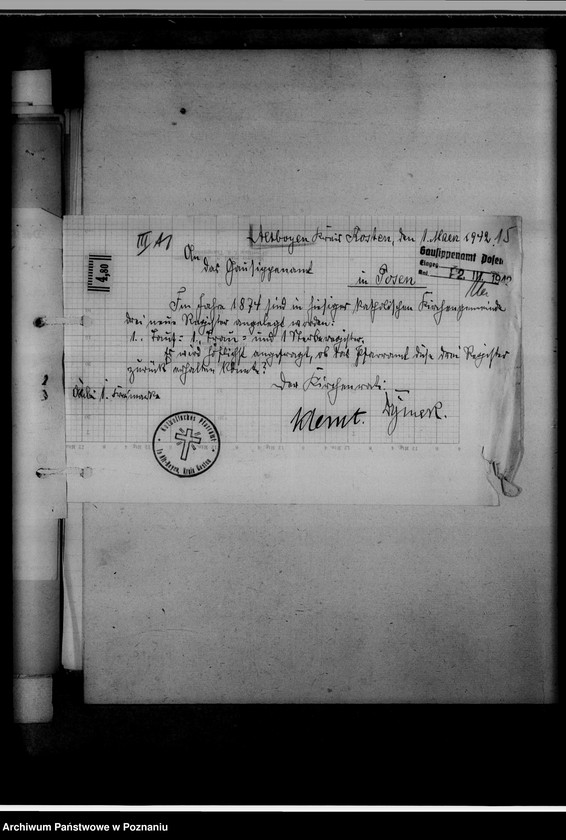 III A1
Altbogen Kreis Kosten, den 1. Maerz 1942. 15
An
das Gausippenamt
in Posen
Gausippenamt Posen
Eingeg.
12. III. 1942
4,80
Im Jahre 1874 sind in hiesiger katholischen Kirchengemeinde
drei neue Register angelegt worden:
1. Tauf= 1. Trau= und 1 Sterberegister.
Es wird höflichst angefragt, ob das Pfarramt diese drei Register
zurück erhalten könnte?
Der Kirchenrat:
1. Freimarke
Klemt.
Katholisches Pfarramt
in Alt-Bogen, Kreis Kosten
Archiwum Państwowe w Poznaniu